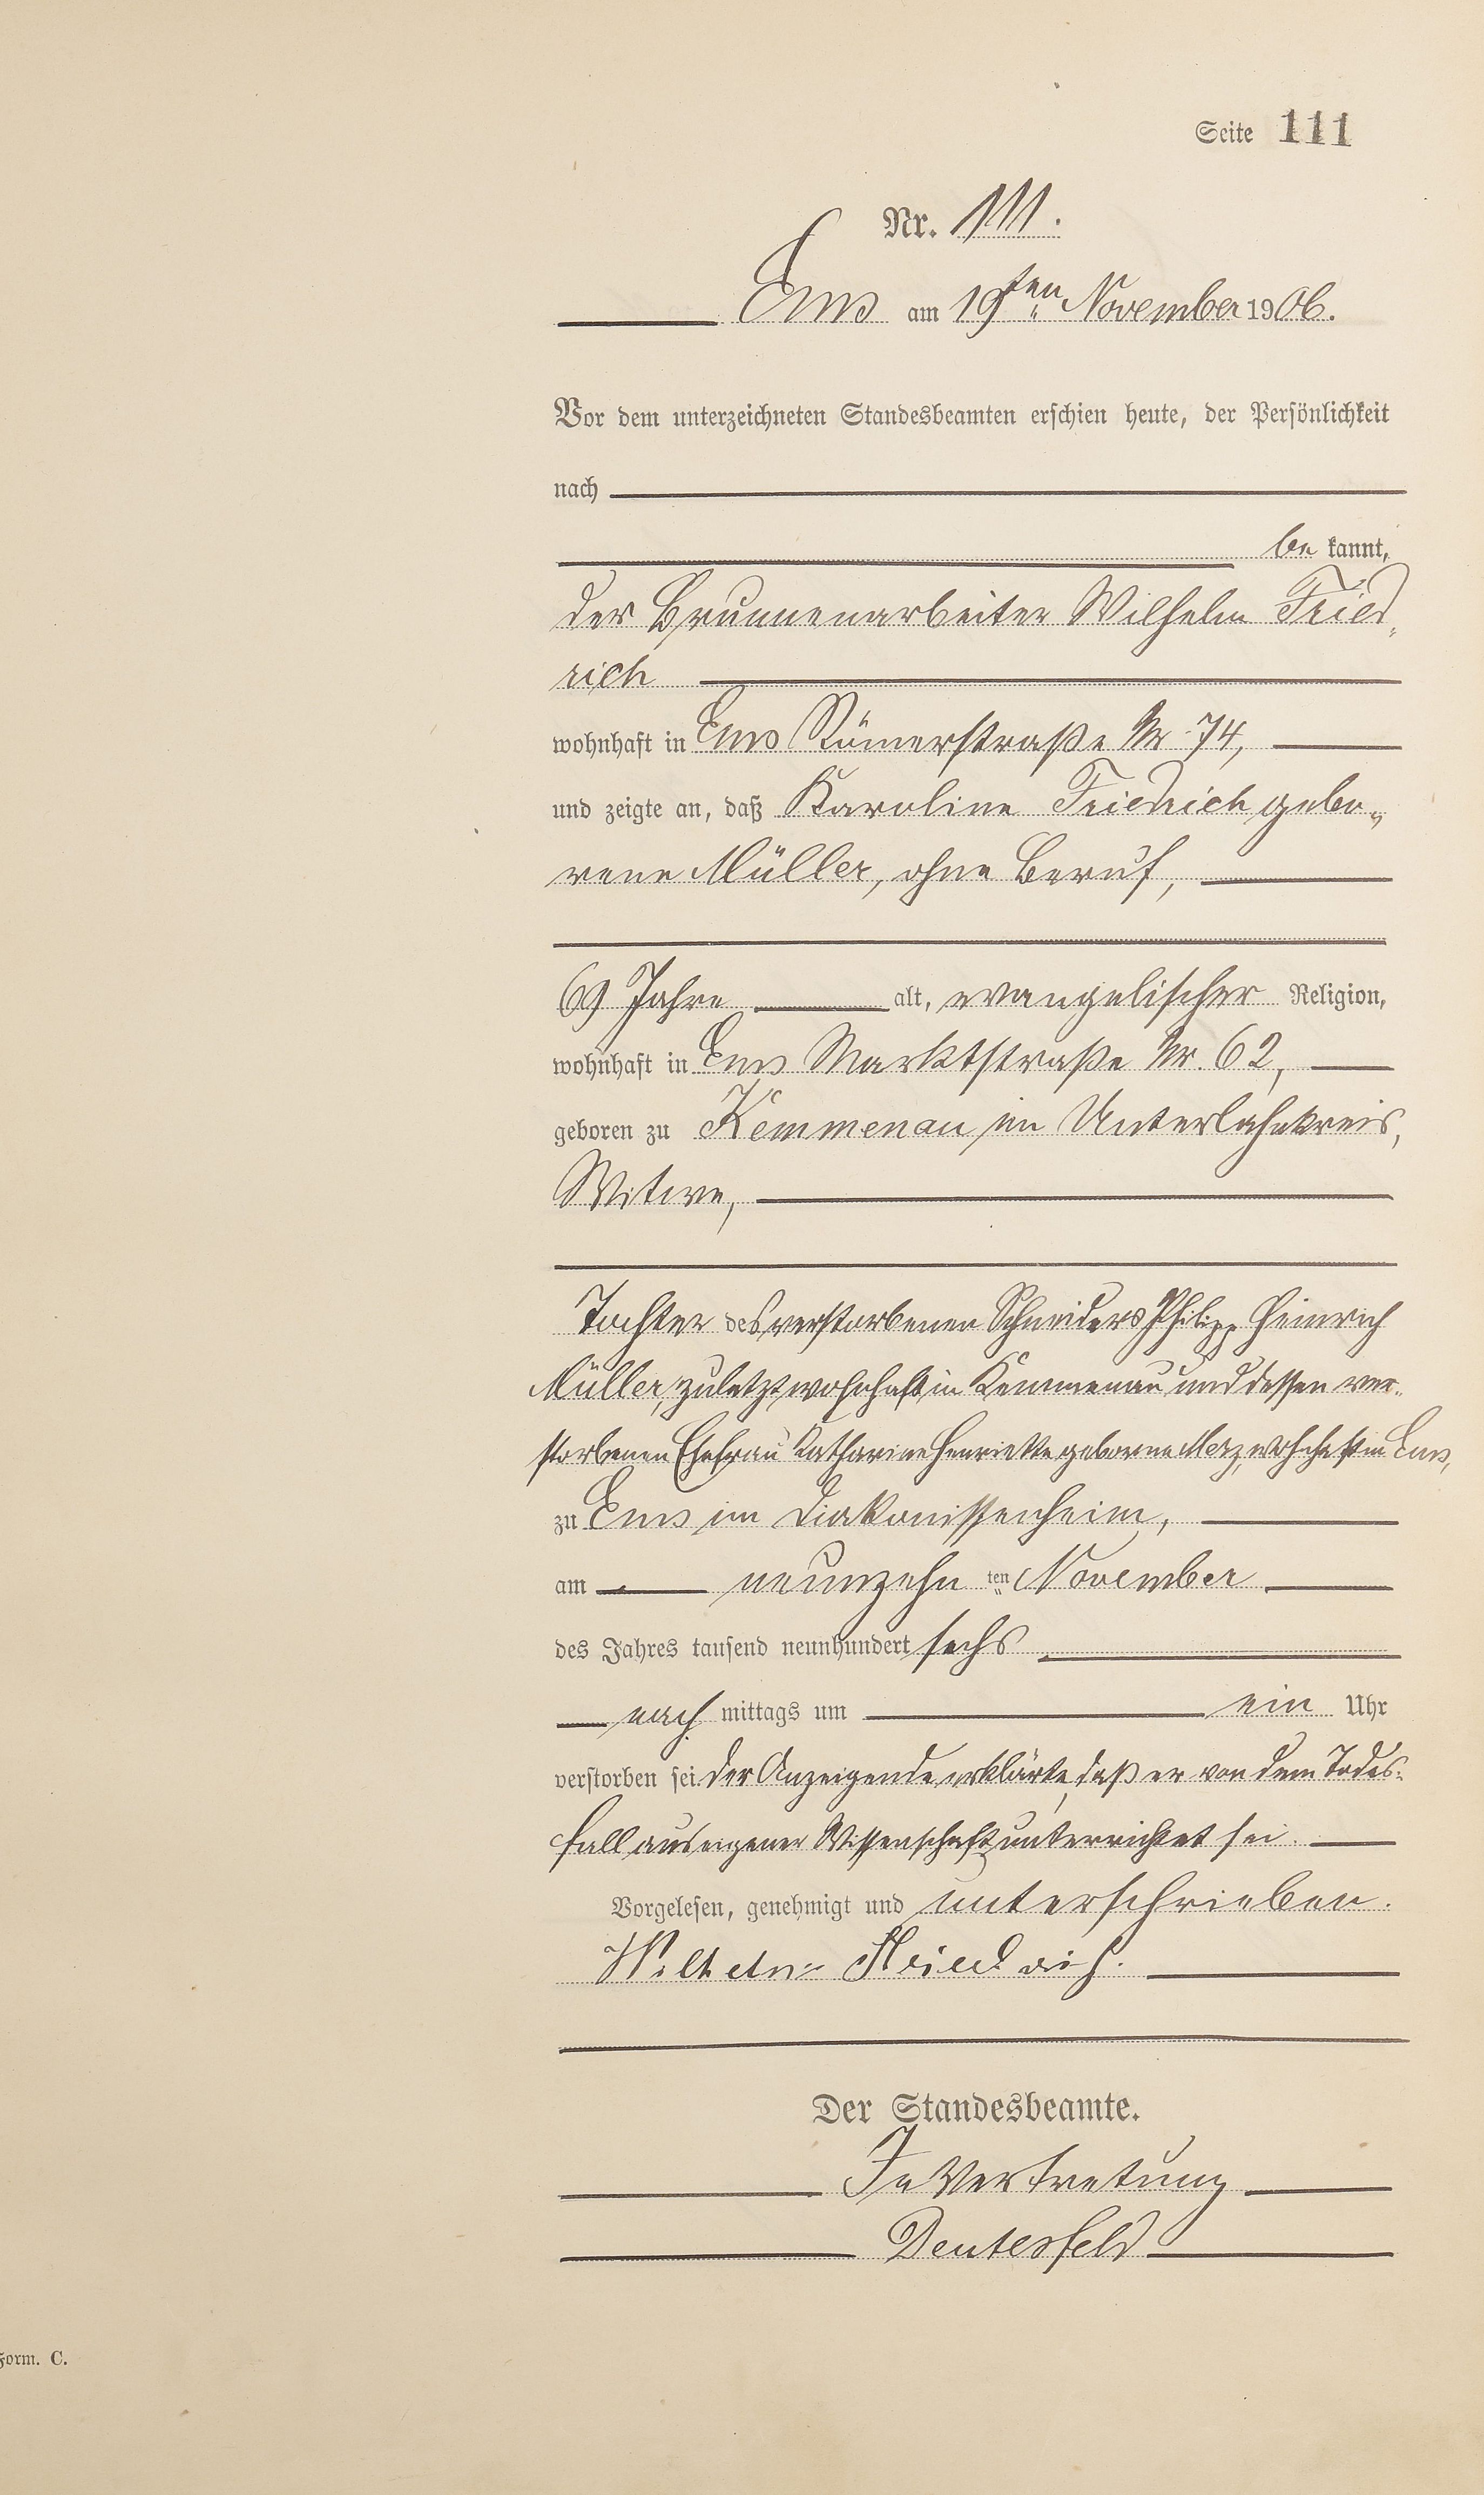 Seite 111
Nr. 111.
Ems am 19ten November 1906.
Vor dem unterzeichneten Standesbeamten erschien heute, der Persönlichkeit
nach
be kannt,
der Brunnenarbeiter Wilhelm Fried-
rich
wohnhaft in Ems Römerstraße Nr 74,
und zeigte an, daß Karoline Friedrich gebo-
rene Müller, ohne Beruf,
69 Jahre alt, evangelischer Religion,
wohnhaft in Ems Marktstraße Nr. 62,
geboren zu Kemmenau im Unterlahnkreis,
Witwe,
Tochter des verstorbenen Schneiders Philipp Heinrich
Müller, zuletzt wohnhaft in Kemmenau und dessen ver-
storbenen Ehefrau Katharine Henriette geborene Merz, wohnhaft in Ems,
zu Ems im Diakonissenheim,
am neunzehn ten November
des Jahres tausend neunhundert sechs
nach mittags um ein Uhr
verstorben sei. Der Anzeigende erklärte, daß er von dem Todes-
fall aus eigener Wissenschaft unterrichtet sei.
Vorgelesen, genehmigt und unterschrieben.
Wilhelm Friedrich.
Der Standesbeamte.
In Vertretung
Deutesfeld
Form. C.